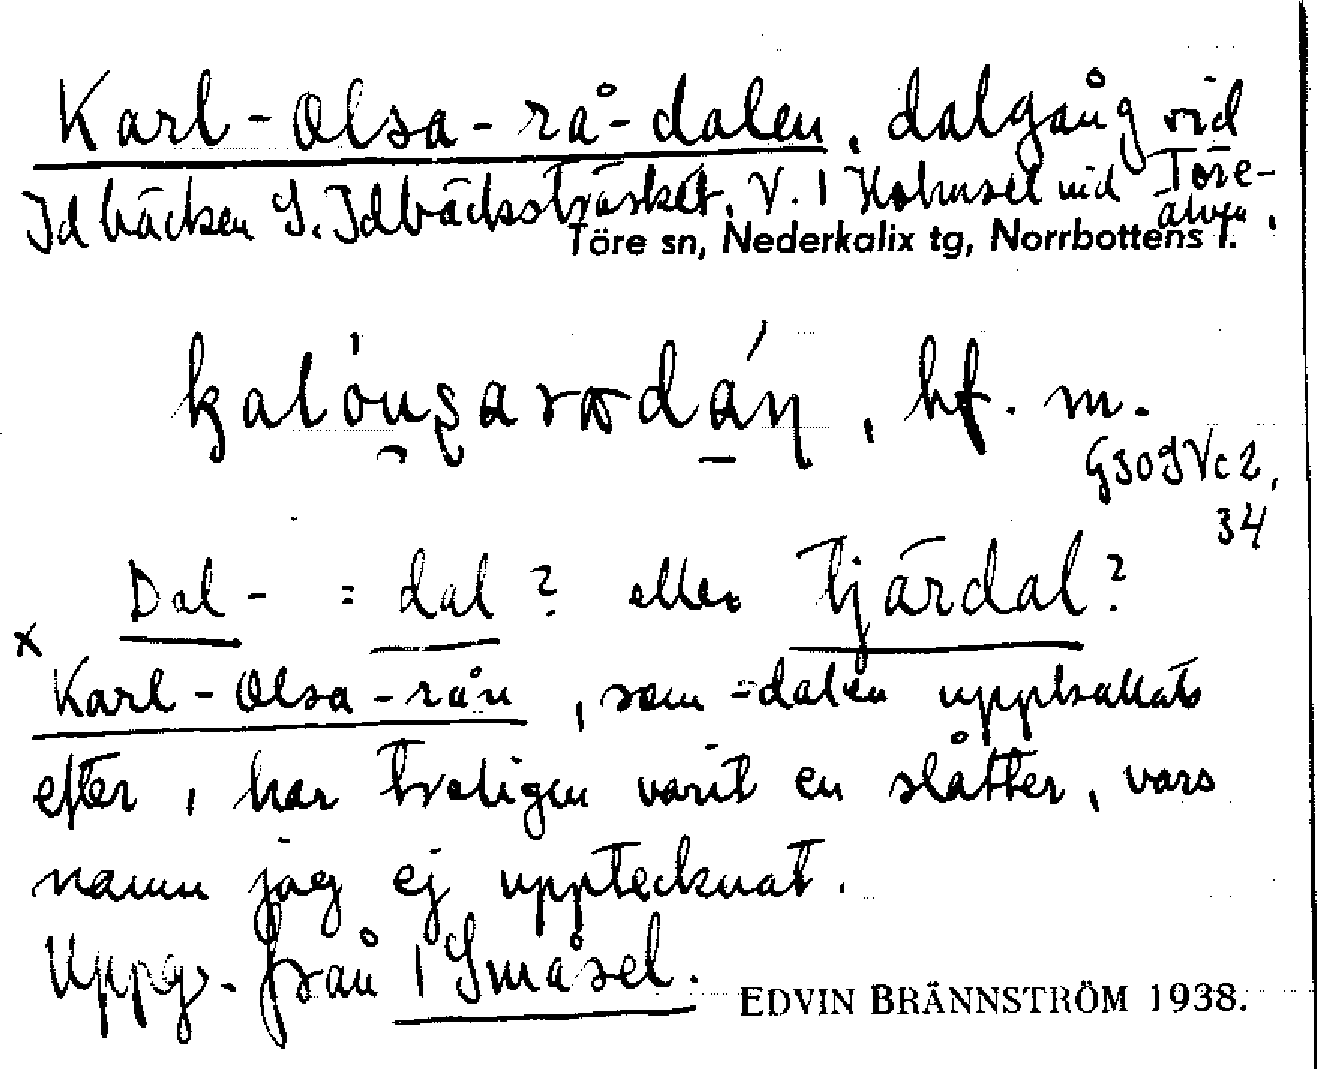 Karl-Olsa-rå-dalen, dalgång vid
Idbäcken S. Idbäcksträsket, V. 1 Holmsel vid Töre-
älven.
Töre sn, Nederkalix tg, Norrbottens l.
hf. m.
G30SVc2,
34
Dal- = dal? eller tjärdal?
x
Karl-Olsa-rån, som =dalen uppkallats
efter, har troligen varit en slåtter, vars
namn jag ej upptecknat.
Uppg. från 1 Småsel.
EDVIN BRÄNNSTRÖM 1938.